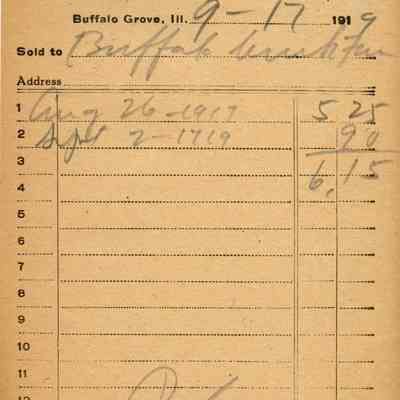 Buffalo Grove, Ill. 9-17 1919
Sold to Buffalo
Address
1 Aug 26-1919 5 25
2 Sept 2-1919 90
3 6,15
4
5
6
7
8
9
10
11
12